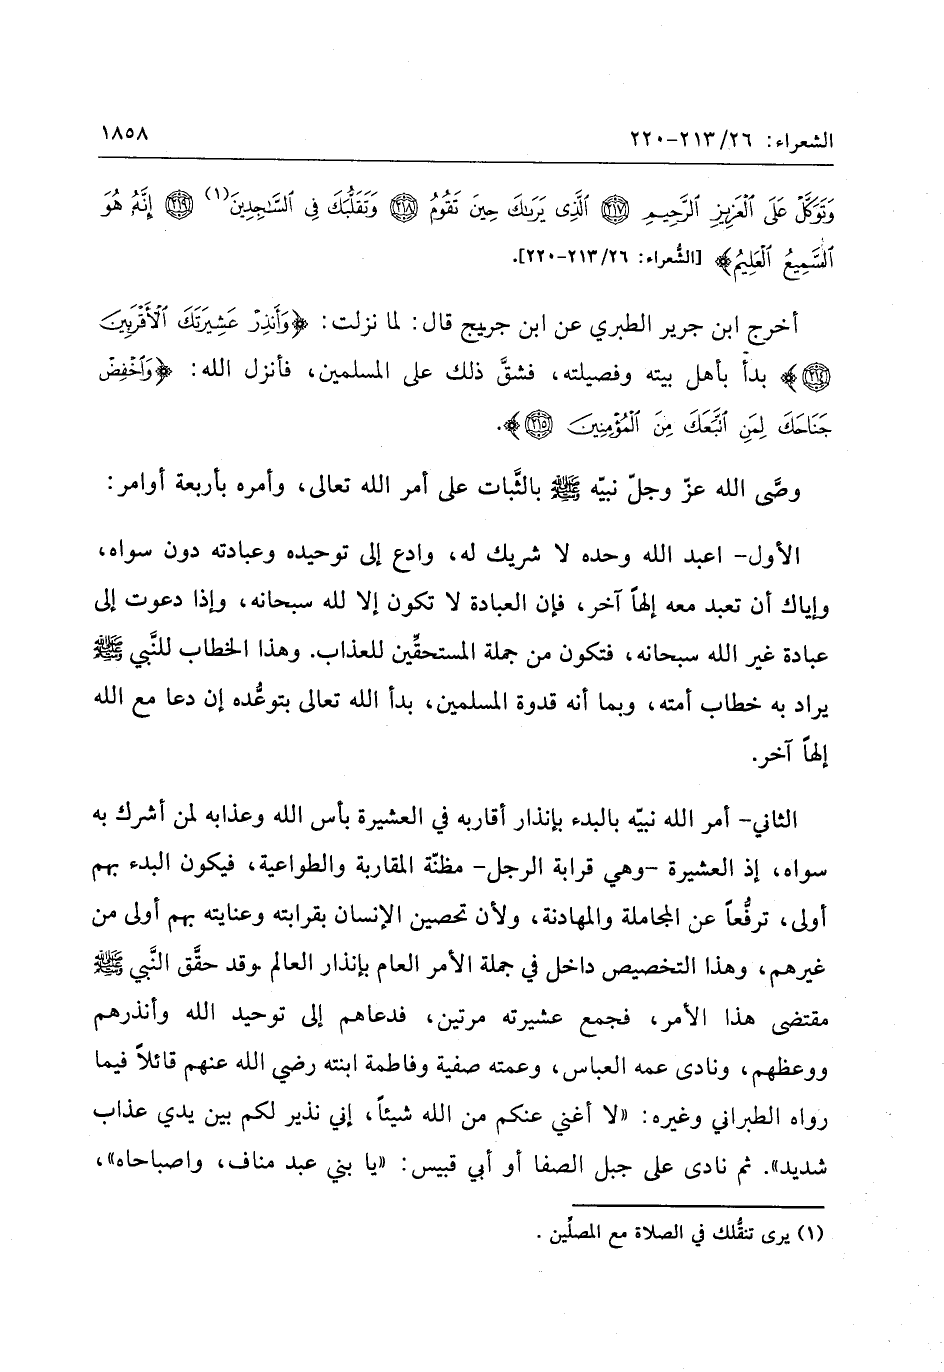 الشعراء: ٢٦/ ٢١٣-٢٢٠
١٨٥٨
وَتَوَكَّلْ عَلَى ٱلْعَزِيزِ ٱلرَّحِيمِ ﴿٢١٧﴾ ٱلَّذِى يَرَىٰكَ حِينَ تَقُومُ ﴿٢١٨﴾ وَتَقَلُّبَكَ فِى ٱلسَّـٰجِدِينَ(١) ﴿٢١٩﴾ إِنَّهُۥ هُوَ
ٱلسَّمِيعُ ٱلْعَلِيمُ﴾ [الشُّعراء: ٢٦/ ٢١٣-٢٢٠].
أخرج ابن جرير الطبري عن ابن جريج قال: لما نزلت: ﴿وَأَنذِرْ عَشِيرَتَكَ ٱلْأَقْرَبِينَ
﴿٢١٤﴾﴾ بدأ بأهل بيته وفصيلته، فشقَّ ذلك على المسلمين، فأنزل الله: ﴿وَٱخْفِضْ
جَنَاحَكَ لِمَنِ ٱتَّبَعَكَ مِنَ ٱلْمُؤْمِنِينَ ﴿٢١٥﴾﴾.
وصَّى الله عزّ وجلّ نبيّه ﷺ بالثَّبات على أمر الله تعالى، وأمره بأربعة أوامر:
الأول- اعبد الله وحده لا شريك له، وادع إلى توحيده وعبادته دون سواه،
وإياك أن تعبد معه إلهاً آخر، فإن العبادة لا تكون إلا لله سبحانه، وإذا دعوت إلى
عبادة غير الله سبحانه، فتكون من جملة المستحقِّين للعذاب. وهذا الخطاب للنَّبي ﷺ
يراد به خطاب أمته، وبما أنه قدوة المسلمين، بدأ الله تعالى بتوعُّده إن دعا مع الله
إلهاً آخر.
الثاني- أمر الله نبيّه بالبدء بإنذار أقاربه في العشيرة بأس الله وعذابه لمن أشرك به
سواه، إذ العشيرة -وهي قرابة الرجل- مظنّة المقاربة والطواعية، فيكون البدء بهم
أولى، ترفُّعاً عن المجاملة والمهادنة، ولأن تحصين الإنسان بقرابته وعنايته بهم أولى من
غيرهم، وهذا التخصيص داخل في جملة الأمر العام بإنذار العالم .وقد حقَّق النَّبي ﷺ
مقتضى هذا الأمر، فجمع عشيرته مرتين، فدعاهم إلى توحيد الله وأنذرهم
ووعظهم، ونادى عمه العباس، وعمته صفية وفاطمة ابنته رضي الله عنهم قائلاً فيما
رواه الطبراني وغيره: «لا أغني عنكم من الله شيئاً، إني نذير لكم بين يدي عذاب
شديد». ثم نادى على جبل الصفا أو أبي قبيس: «يا بني عبد مناف، واصباحاه»،
(١) يرى تنقُّلك في الصلاة مع المصلِّين .